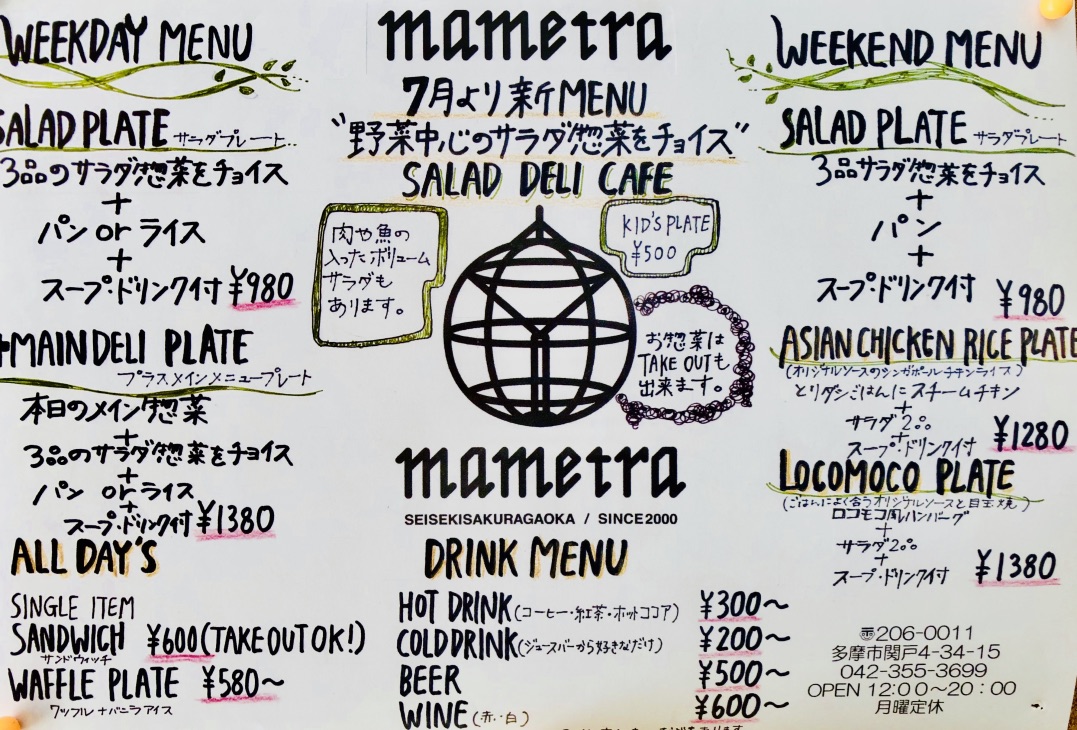 WEEKDAY MENU
SALAD PLATE サラダプレート
3品のサラダ惣菜をチョイス
+
パン or ライス
+
スープ・ドリンク付 ¥980
+MAIN DELI PLATE
プラスメインメニュープレート
本日のメイン惣菜
+
3品のサラダ惣菜をチョイス
+
パン or ライス
+
スープ・ドリンク付 ¥1380
ALL DAY'S
SINGLE ITEM
SANDWICH ¥600 (TAKE OUT OK!)
サンドウィッチ
WAFFLE PLATE ¥580~
ワッフル+バニラアイス
mametra
7月より新MENU
"野菜中心のサラダ惣菜をチョイス"
SALAD DELI CAFE
肉や魚の
入ったボリューム
サラダも
あります。
KID'S PLATE
¥500
お惣菜は
TAKE OUTも
出来ます。
mametra
SEISEKISAKURAGAOKA / SINCE2000
DRINK MENU
HOT DRINK (コーヒー・紅茶・ホットココア) ¥300~
COLD DRINK (ジュースバーから好きなだけ) ¥200~
BEER ¥500~
WINE (赤・白) ¥600~
WEEKEND MENU
SALAD PLATE サラダプレート
3品サラダ惣菜をチョイス
+
パン
+
スープ・ドリンク付 ¥980
ASIAN CHICKEN RICE PLATE
(オリジナルソースのシンガポールチキンライス)
とりダシごはんにスチームチキン
+
サラダ2品
+
スープ・ドリンク付 ¥1280
LOCOMOCO PLATE
(ごはんによく合うオリジナルソースと目玉焼)
ロコモコ風ハンバーグ
+
サラダ2品
+
スープ・ドリンク付 ¥1380
〠206-0011
多摩市関戸4-34-15
042-355-3699
OPEN 12:00~20:00
月曜定休